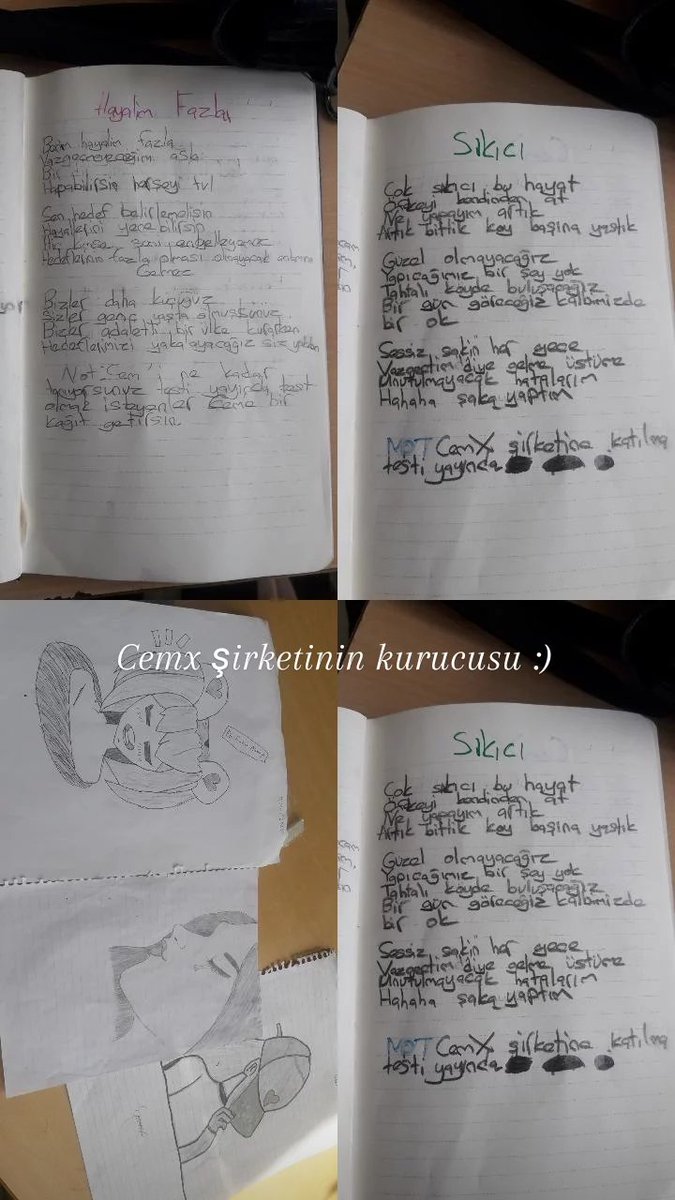 Hayalim Fazla
Benim hayalim fazla
Vazgeçmeyeceğim asla
Bir
Yapabilirsin herşeyi
Sen hedef belirlemelisin
Hayallerini yenebilirsin
Hiç kimse seni engelleyemez
Hedeflerinin fazla olması olmayacak anlamına
Gelmez
Bizler daha küçüğüz
Sizler genç yaşta olmuşsunuz
Bizler adaletli bir ülke kurarken
Hedeflerimizi yakalayacağız siz yokken
Not "Cem" i ne kadar
tanıyorsunuz testi yayında test
olmak isteyenler Ceme bir
kağıt getirsin
Sıkıcı
Çok sıkıcı bu hayat
Öfkeyi kendinden at
Ne yapayım artık
Artık bittik koy başına yastık
Güzel olmayacağız
Yapıcağımız bir şey yok
Tahtalı köyde buluşacağız
Bir gün göreceğiz kalbimizde
bir ok
Sessiz sakin her gece
Vazgeçtim diye gelme üstüme
Unutulmayacak hatalarım
Hahaha şaka yaptım
NOT CemX şirketine katılma
testi yayında
Cemx şirketinin kurucusu :)
Sıkıcı
Çok sıkıcı bu hayat
Öfkeyi kendinden at
Ne yapayım artık
Artık bittik koy başına yastık
Güzel olmayacağız
Yapıcağımız bir şey yok
Tahtalı köyde buluşacağız
Bir gün göreceğiz kalbimizde
bir ok
Sessiz sakin her gece
Vazgeçtim diye gelme üstüme
Unutulmayacak hatalarım
Hahaha şaka yaptım
NOT CemX şirketine katılma
testi yayında